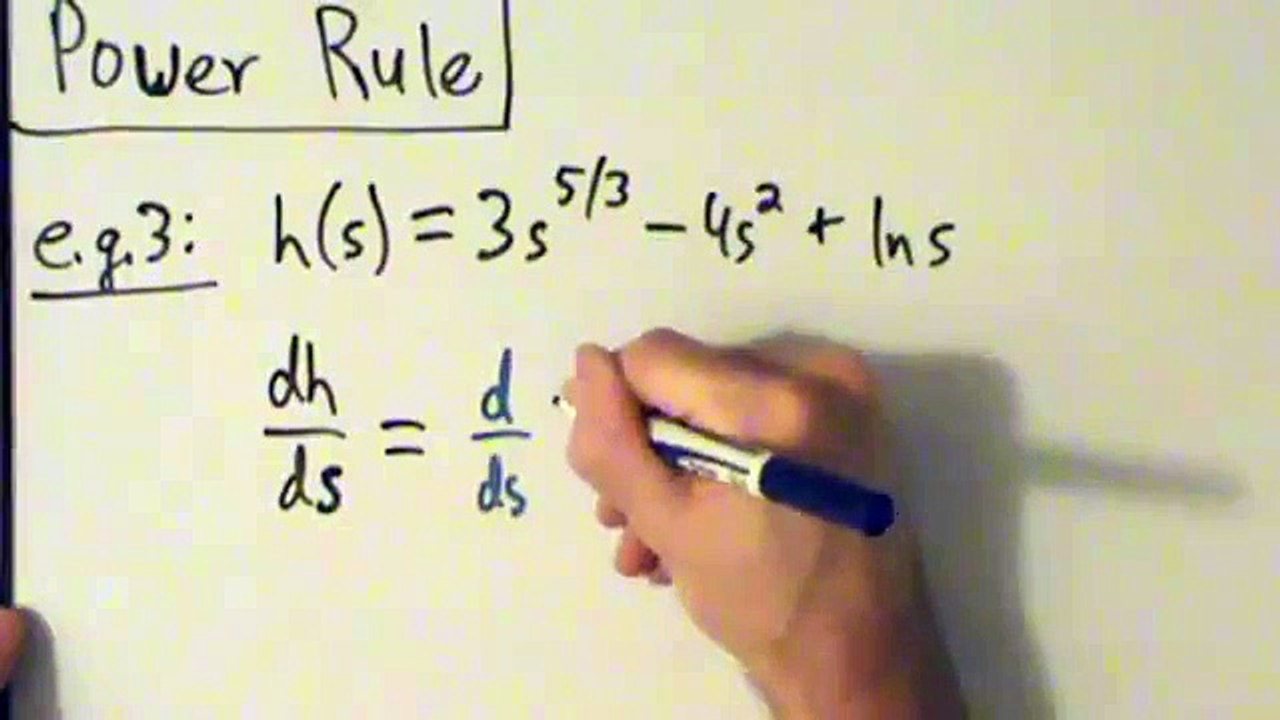 Power Rule
e.g.3: h(s) = 3s^5/3 - 4s^2 + ln s
dh/ds = d/ds